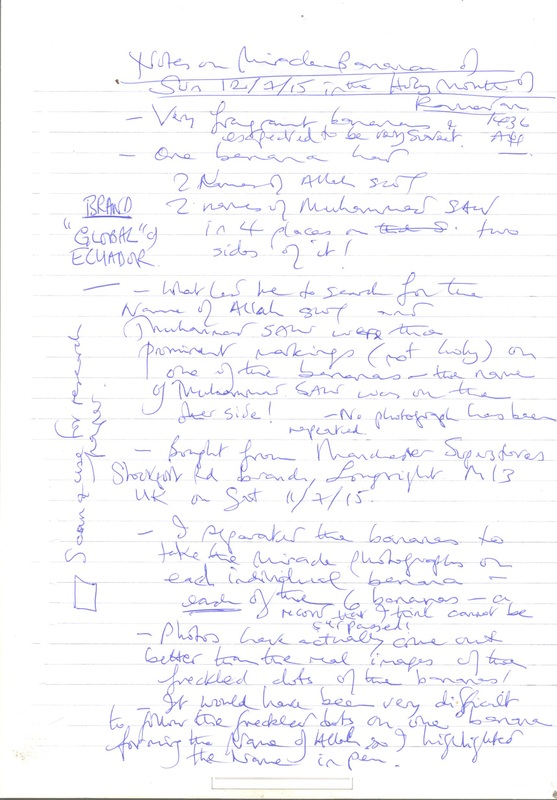 Notes on Miracle Bananas of
Sun 12/7/15 in the Holy Month of
Ramadan
- Very fragrant bananas & 1436
expected to be very sweet. AH
- One banana had
2 Names of Allah SWT
2 names of Muhammad SAW
in 4 places on the two
sides of it!
BRAND
"GLOBAL" of
ECUADOR
- What led me to search for the
Name of Allah SWT and
Muhammad SAW were the
prominent markings (not holy) on
one of the bananas - the name
of Muhammad SAW was on the
other side! - No photograph has been
repeated.
- Bought from Manchester Superstores
Stockport Rd Branch, Longsight M13
UK on Sat 11/7/15.
- I separated the bananas to
take the miracle photographs on
each individual banana -
each of the 6 bananas - a
record that cannot be
surpassed!
- Photos have actually come out
better than the real images of the
freckled dots of the bananas!
- It would have been very difficult
to follow the freckled dots on one banana
forming the Name of Allah so I highlighted
the Name in pen.
Scan & use for research
paper.